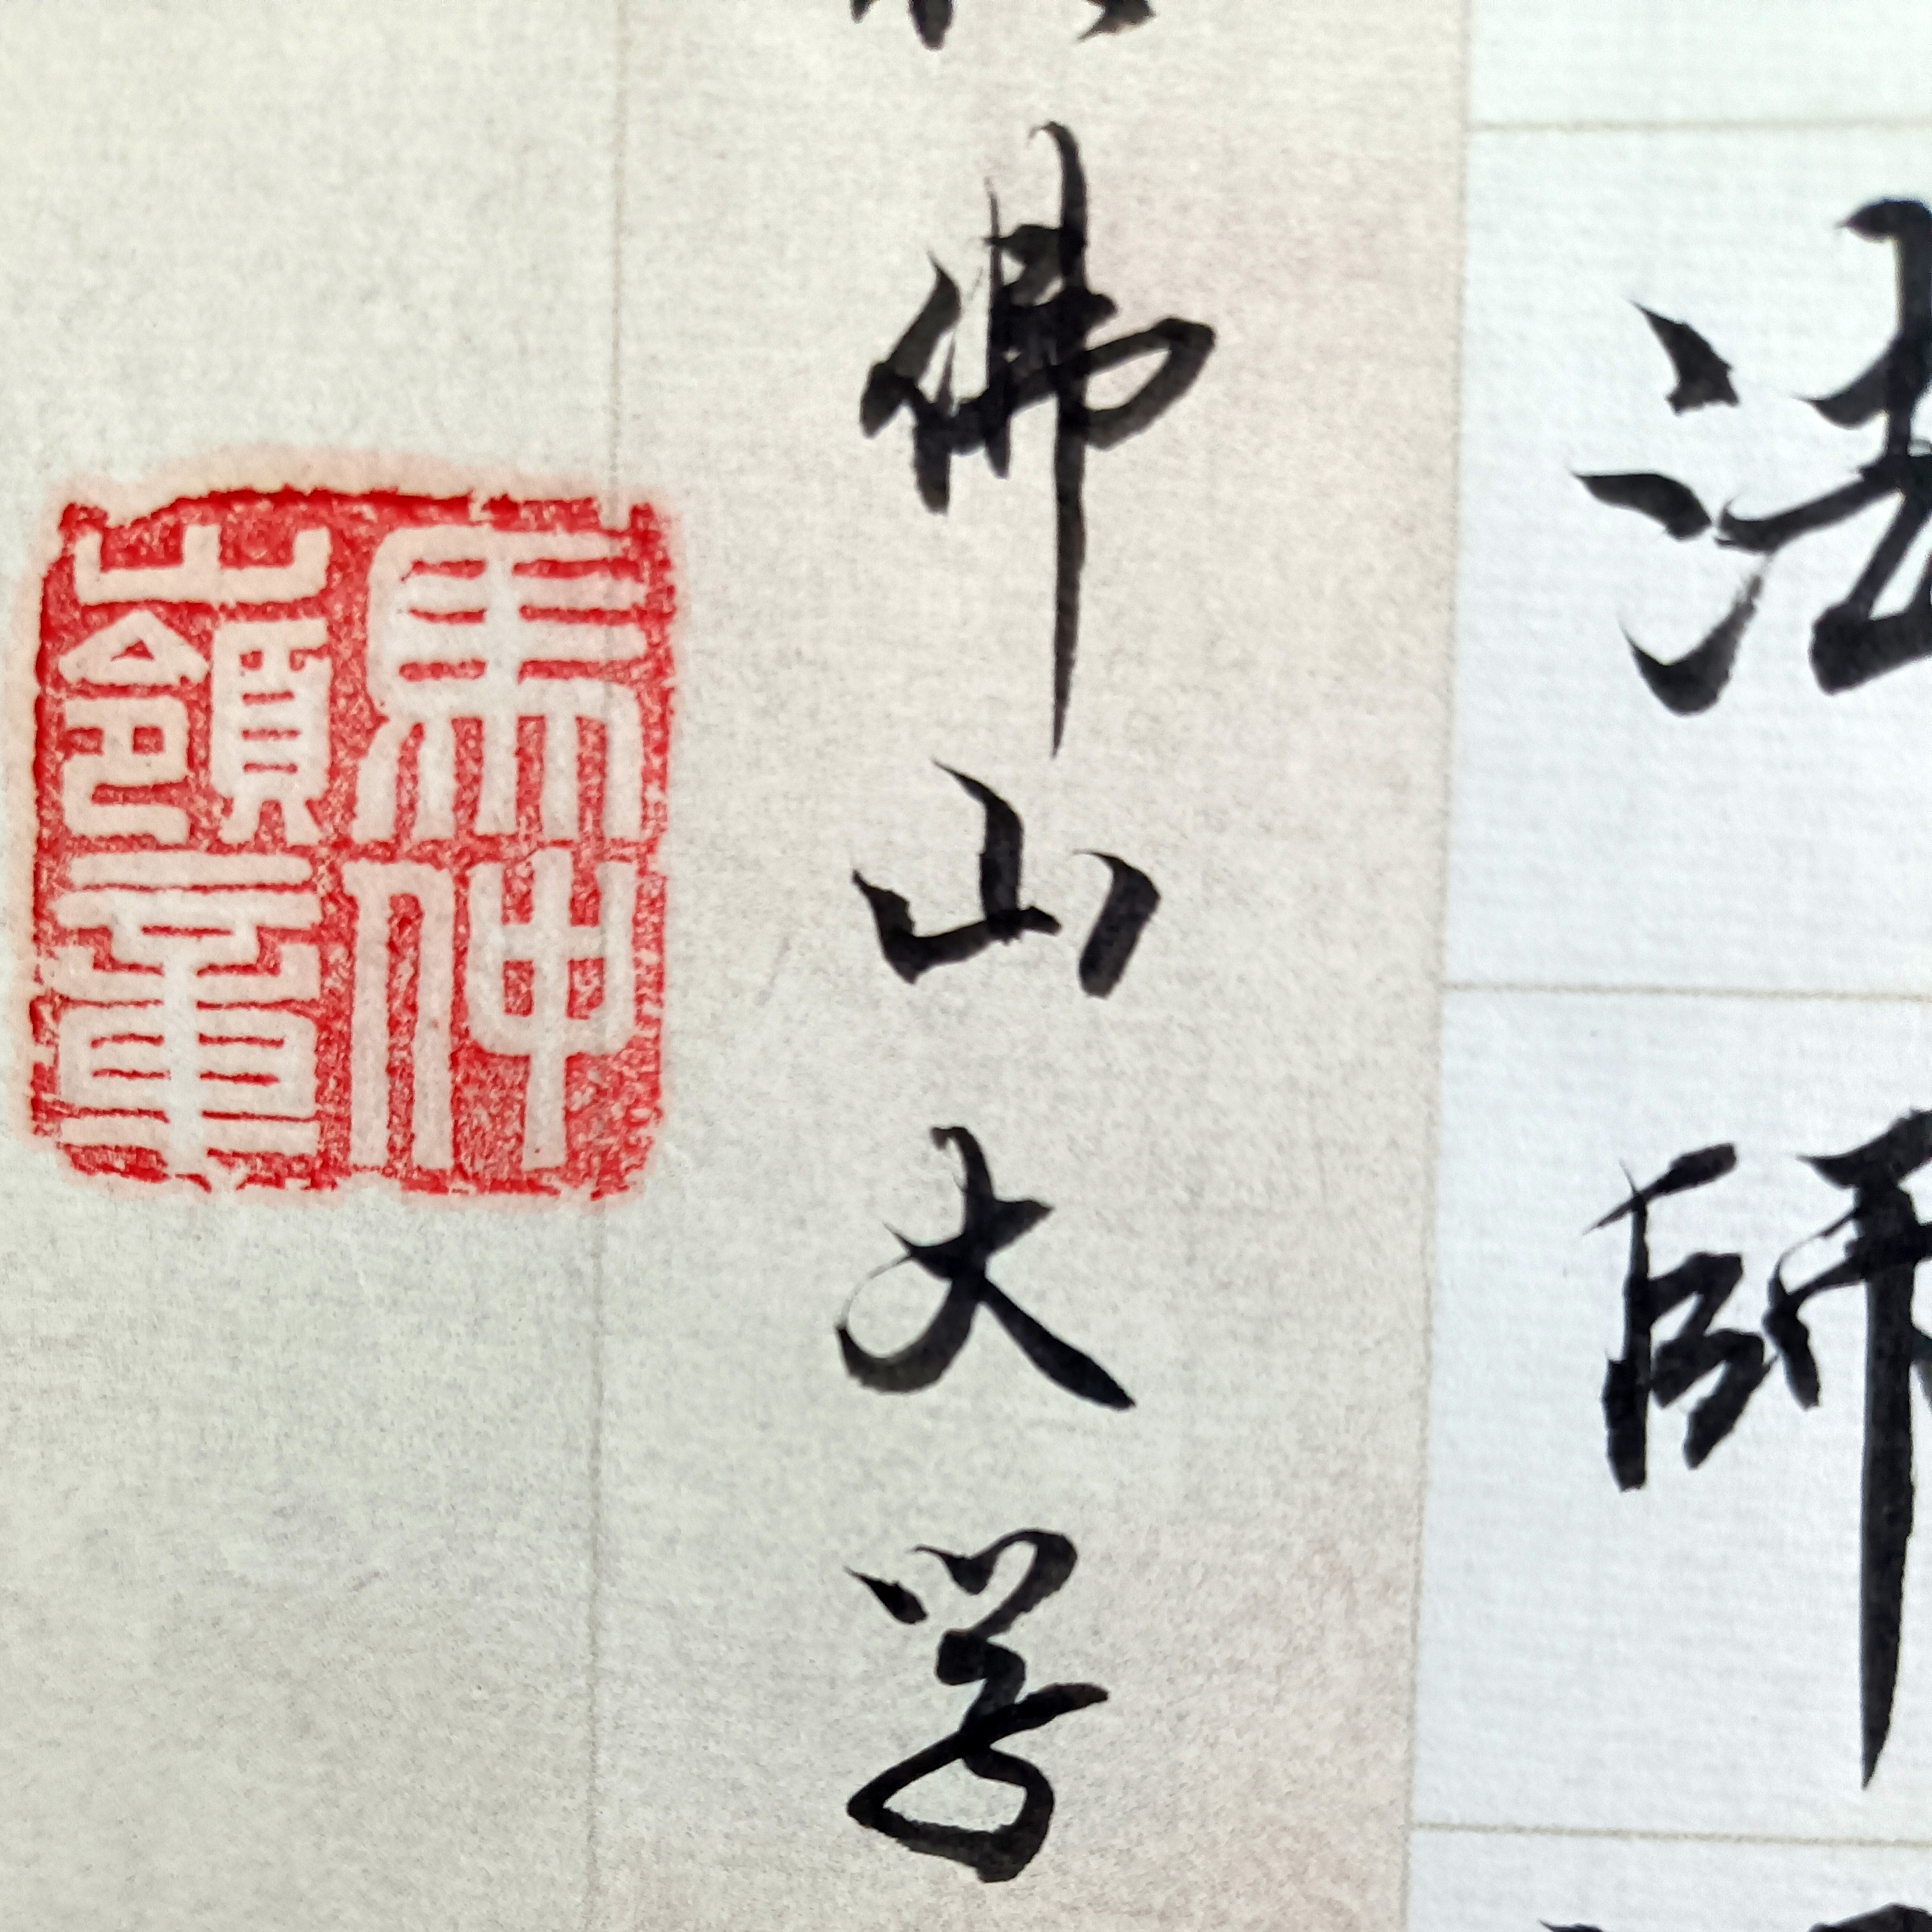 法師
佛山大学
馬仲嶺章